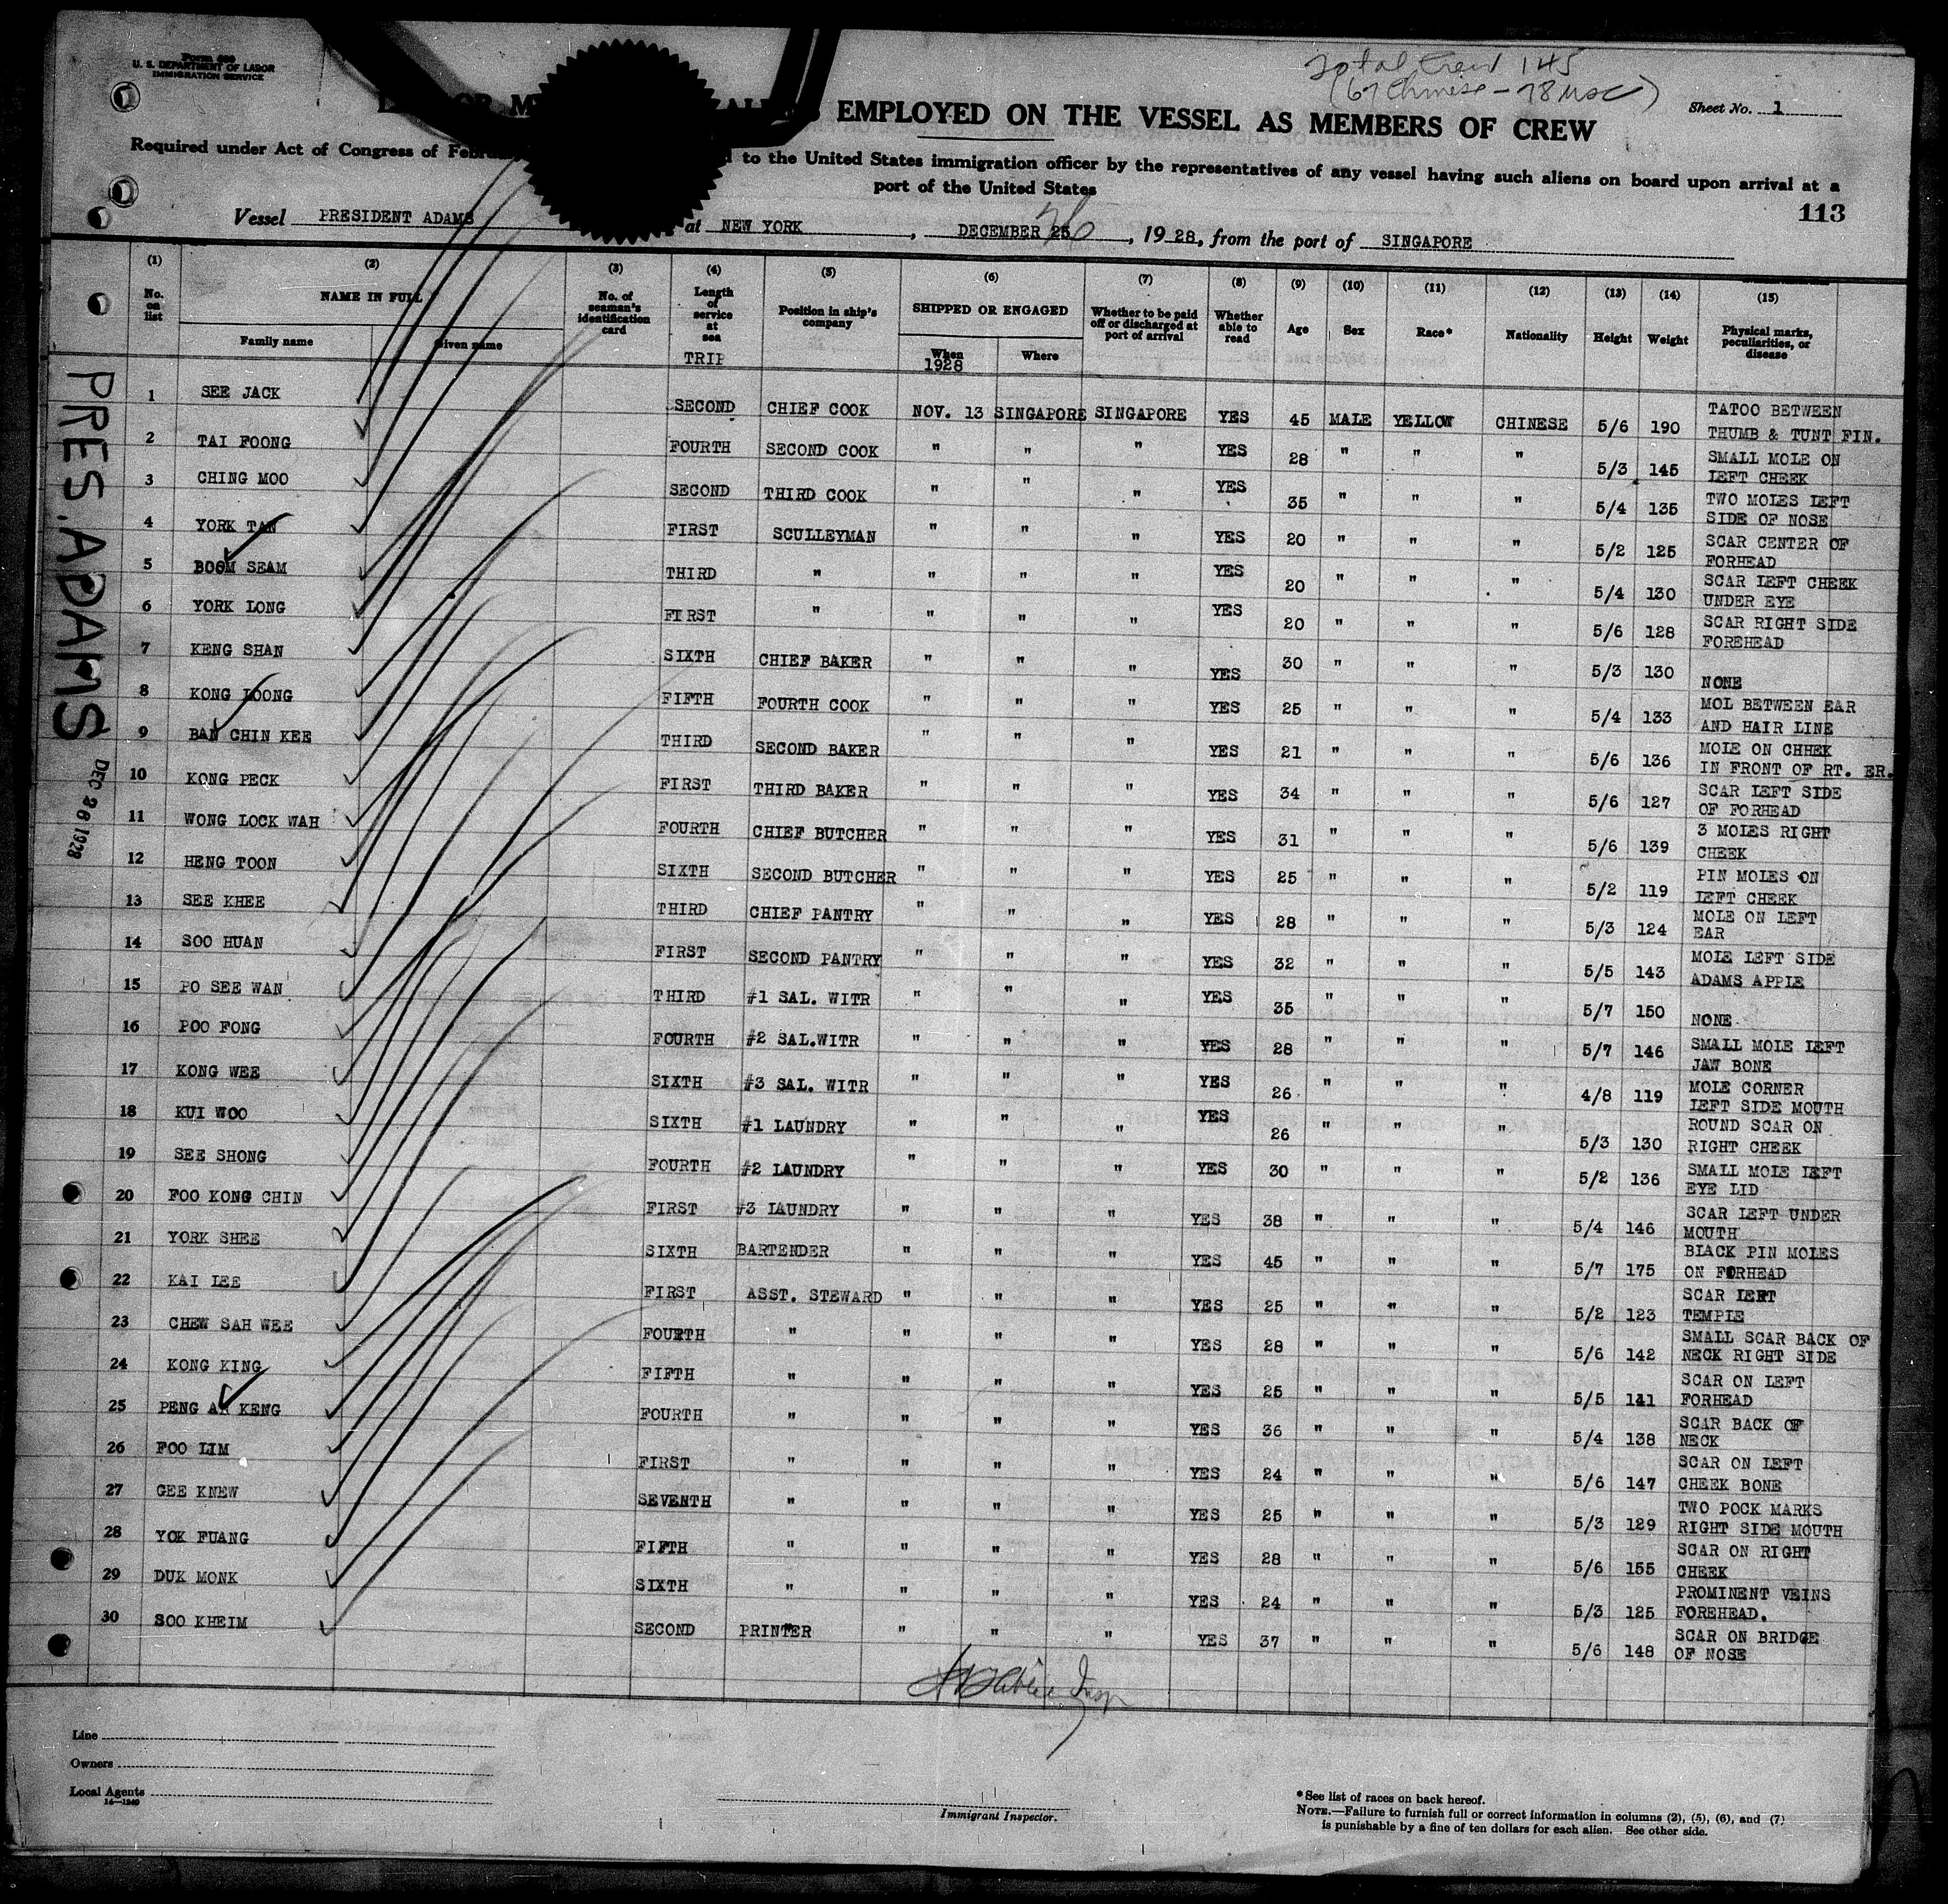 Form 689
U. S. DEPARTMENT OF LABOR
IMMIGRATION SERVICE
Total Crew 145
(67 Chinese - 78 USC)
EMPLOYED ON THE VESSEL AS MEMBERS OF CREW
Sheet No. 1
Required under Act of Congress of to the United States immigration officer by the representatives of any vessel having such aliens on board upon arrival at a
port of the United States
113
Vessel PRESIDENT ADAMS at NEW YORK, DECEMBER 25 26, 1928, from the port of SINGAPORE
(1) (2) (3) (4) (5) (6) (7) (8) (9) (10) (11) (12) (13) (14) (15)
No. on list NAME IN FULL Family name Given name No. of seaman's identification card Length of service at sea Position in ship's company SHIPPED OR ENGAGED When Where Whether to be paid off or discharged at port of arrival Whether able to read Age Sex Race* Nationality Height Weight Physical marks, peculiarities, or disease
TRIP 1928
1 SEE JACK SECOND CHIEF COOK NOV. 13 SINGAPORE SINGAPORE YES 45 MALE YELLOW CHINESE 5/6 190 TATOO BETWEEN THUMB & TUNT FIN.
2 TAI FOONG FOURTH SECOND COOK " " " YES 28 " " " 5/3 145 SMALL MOLE ON LEFT CHEEK
3 CHING MOO SECOND THIRD COOK " " " YES 35 " " " 5/4 135 TWO MOLES LEFT SIDE OF NOSE
4 YORK TAN FIRST SCULLEYMAN " " " YES 20 " " " 5/2 125 SCAR CENTER OF FORHEAD
5 BOOM SEAM THIRD " " " " YES 20 " " " 5/4 130 SCAR LEFT CHEEK UNDER EYE
6 YORK LONG FIRST " " " " YES 20 " " " 5/6 128 SCAR RIGHT SIDE FOREHEAD
7 KENG SHAN SIXTH CHIEF BAKER " " " YES 30 " " " 5/3 130 NONE
8 KONG LOONG FIFTH FOURTH COOK " " " YES 25 " " " 5/4 133 MOL BETWEEN EAR AND HAIR LINE
9 BAN CHIN KEE THIRD SECOND BAKER " " " YES 21 " " " 5/6 136 MOLE ON CHHEK IN FRONT OF RT. ER.
10 KONG PECK FIRST THIRD BAKER " " " YES 34 " " " 5/6 127 SCAR LEFT SIDE OF FORHEAD
11 WONG LOCK WAH FOURTH CHIEF BUTCHER " " " YES 31 " " " 5/6 139 3 MOLES RIGHT CHEEK
12 HENG TOON SIXTH SECOND BUTCHER " " " YES 25 " " " 5/2 119 PIN MOLES ON LEFT CHEEK
13 SEE KHEE THIRD CHIEF PANTRY " " " YES 28 " " " 5/3 124 MOLE ON LEFT EAR
14 SOO HUAN FIRST SECOND PANTRY " " " YES 32 " " " 5/5 143 MOLE LEFT SIDE ADAMS APPLE
15 PO SEE WAN THIRD #1 SAL. WITR " " " YES 35 " " " 5/7 150 NONE
16 POO FONG FOURTH #2 SAL.WITR " " " YES 28 " " " 5/7 146 SMALL MOLE LEFT JAW BONE
17 KONG WEE SIXTH #3 SAL. WITR " " " YES 26 " " " 4/8 119 MOLE CORNER LEFT SIDE MOUTH
18 KUI WOO SIXTH #1 LAUNDRY " " " YES 26 " " " 5/3 130 ROUND SCAR ON RIGHT CHEEK
19 SEE SHONG FOURTH #2 LAUNDRY " " " YES 30 " " " 5/2 136 SMALL MOLE LEFT EYE LID
20 FOO KONG CHIN FIRST #3 LAUNDRY " " " YES 38 " " " 5/4 146 SCAR LEFT UNDER MOUTH
21 YORK SHEE SIXTH BARTENDER " " " YES 45 " " " 5/7 175 BLACK PIN MOLES ON FORHEAD
22 KAI LEE FIRST ASST. STEWARD " " " YES 25 " " " 5/2 123 SCAR LEFT TEMPLE
23 CHEW SAH WEE FOURTH " " " " YES 28 " " " 5/6 142 SMALL SCAR BACK OF NECK RIGHT SIDE
24 KONG KING FIFTH " " " " YES 25 " " " 5/5 141 SCAR ON LEFT FORHEAD
25 PENG AH KENG FOURTH " " " " YES 36 " " " 5/4 138 SCAR BACK OF NECK
26 FOO LIM FIRST " " " " YES 24 " " " 5/6 147 SCAR ON LEFT CHEEK BONE
27 GEE KNEW SEVENTH " " " " YES 25 " " " 5/3 129 TWO POCK MARKS RIGHT SIDE MOUTH
28 YOK FUANG FIFTH " " " " YES 28 " " " 5/6 155 SCAR ON RIGHT CHEEK
29 DUK MONK SIXTH " " " " YES 24 " " " 5/3 125 PROMINENT VEINS FOREHEAD.
30 SOO KHEIM SECOND PRINTER " " " YES 37 " " " 5/6 148 SCAR ON BRIDGE OF NOSE
PRES. ADAMS
DEC 26 1928
Line
Owners
Local Agents
14—1240
Immigrant Inspector.
* See list of races on back hereof.
NOTE.—Failure to furnish full or correct information in columns (2), (5), (6), and (7)
is punishable by a fine of ten dollars for each alien. See other side.